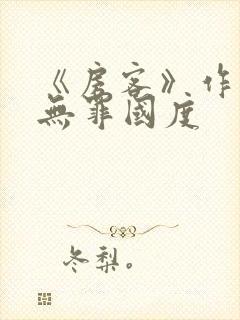 《房客》作
無罪國度
冬梨。